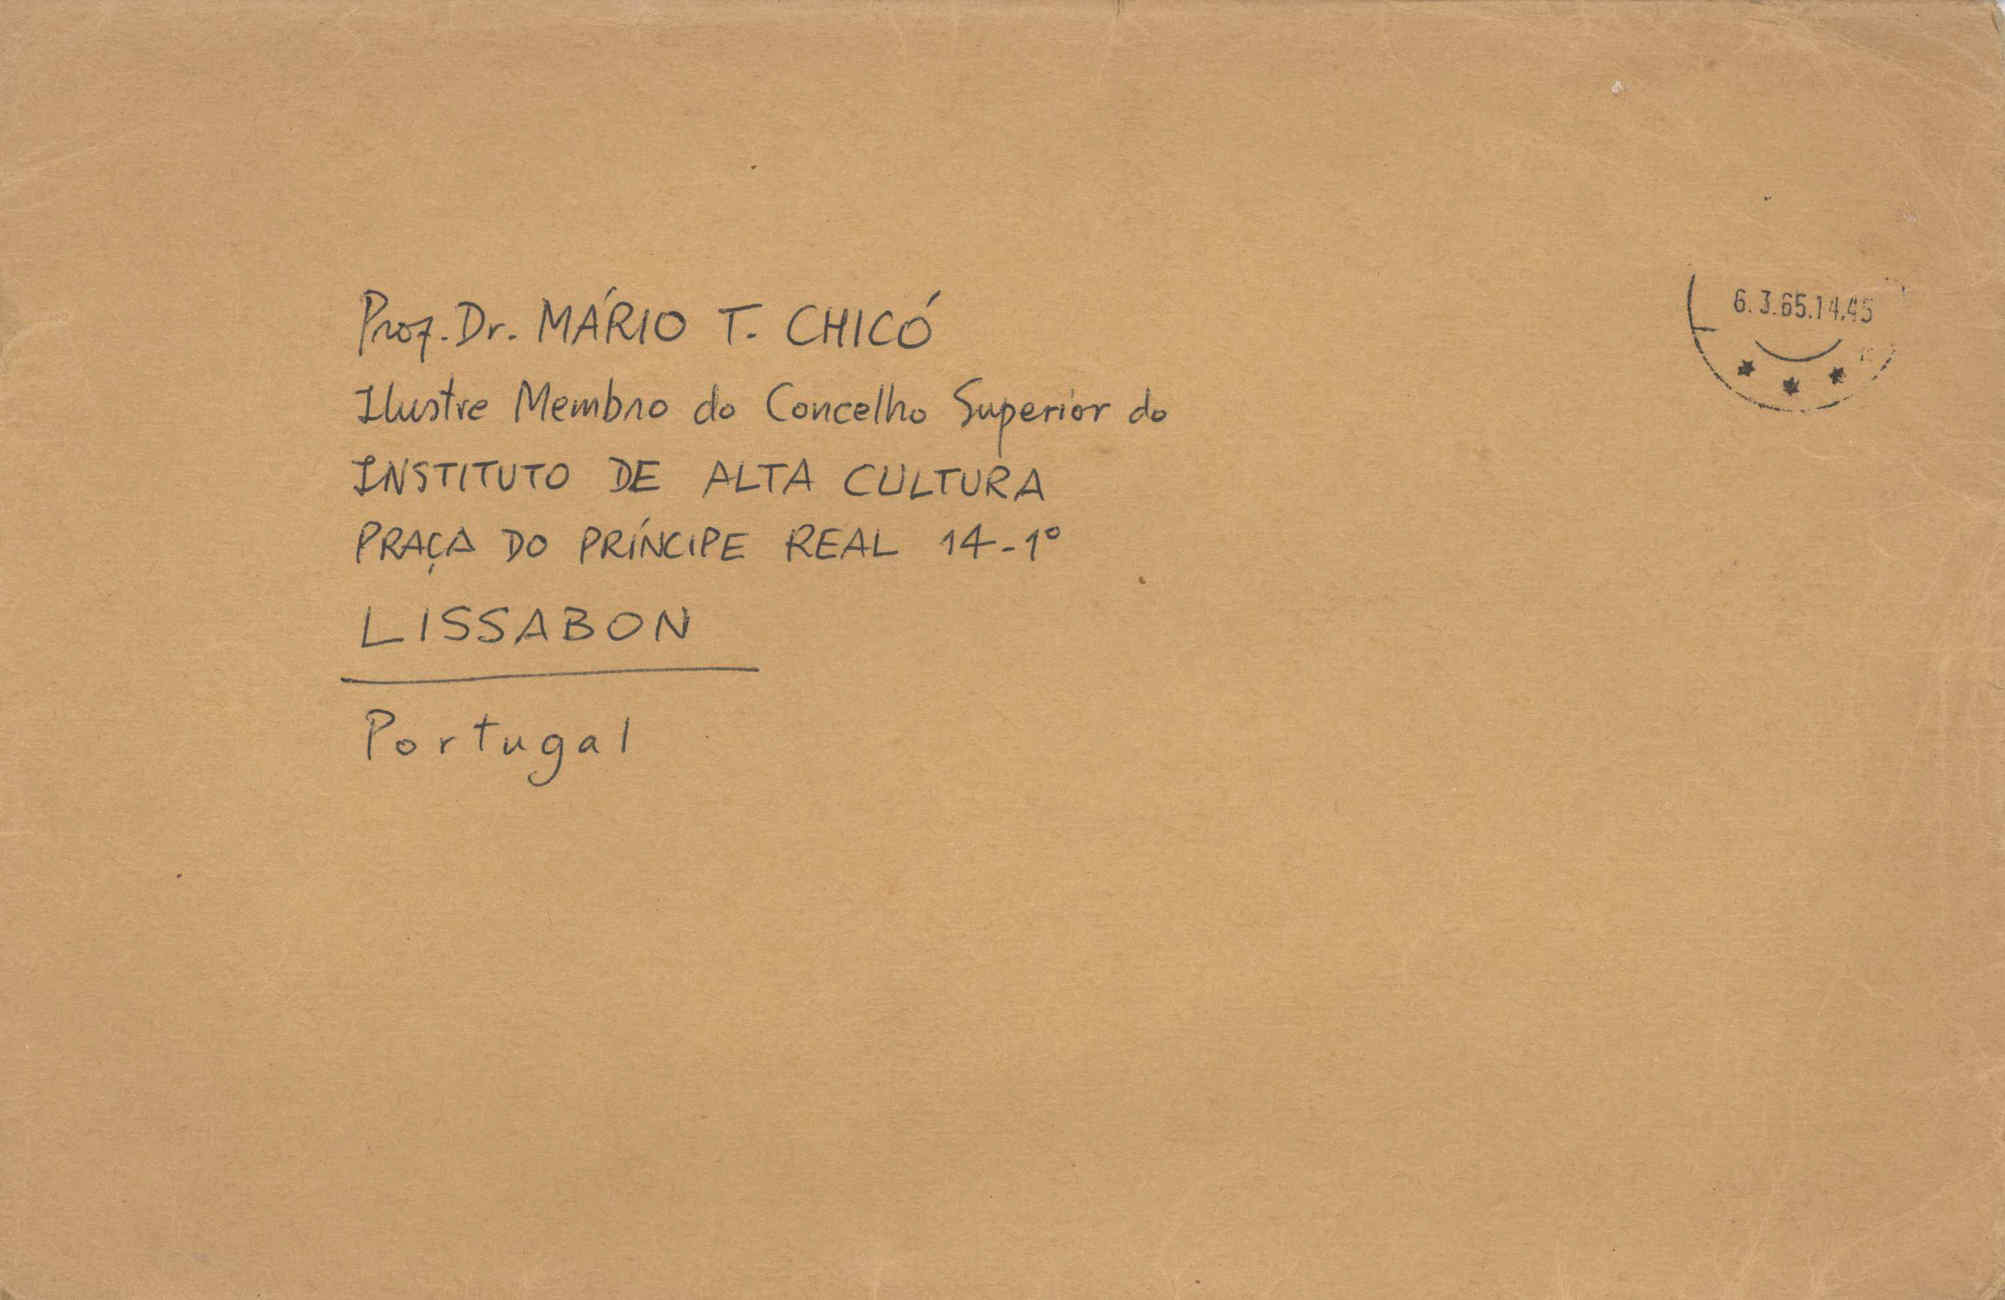 Prof. Dr. MÁRIO T. CHICÓ
Ilustre Membro do Concelho Superior do
INSTITUTO DE ALTA CULTURA
PRAÇA DO PRÍNCIPE REAL 14-1º
LISSABON
Portugal
6.3.65.14.45